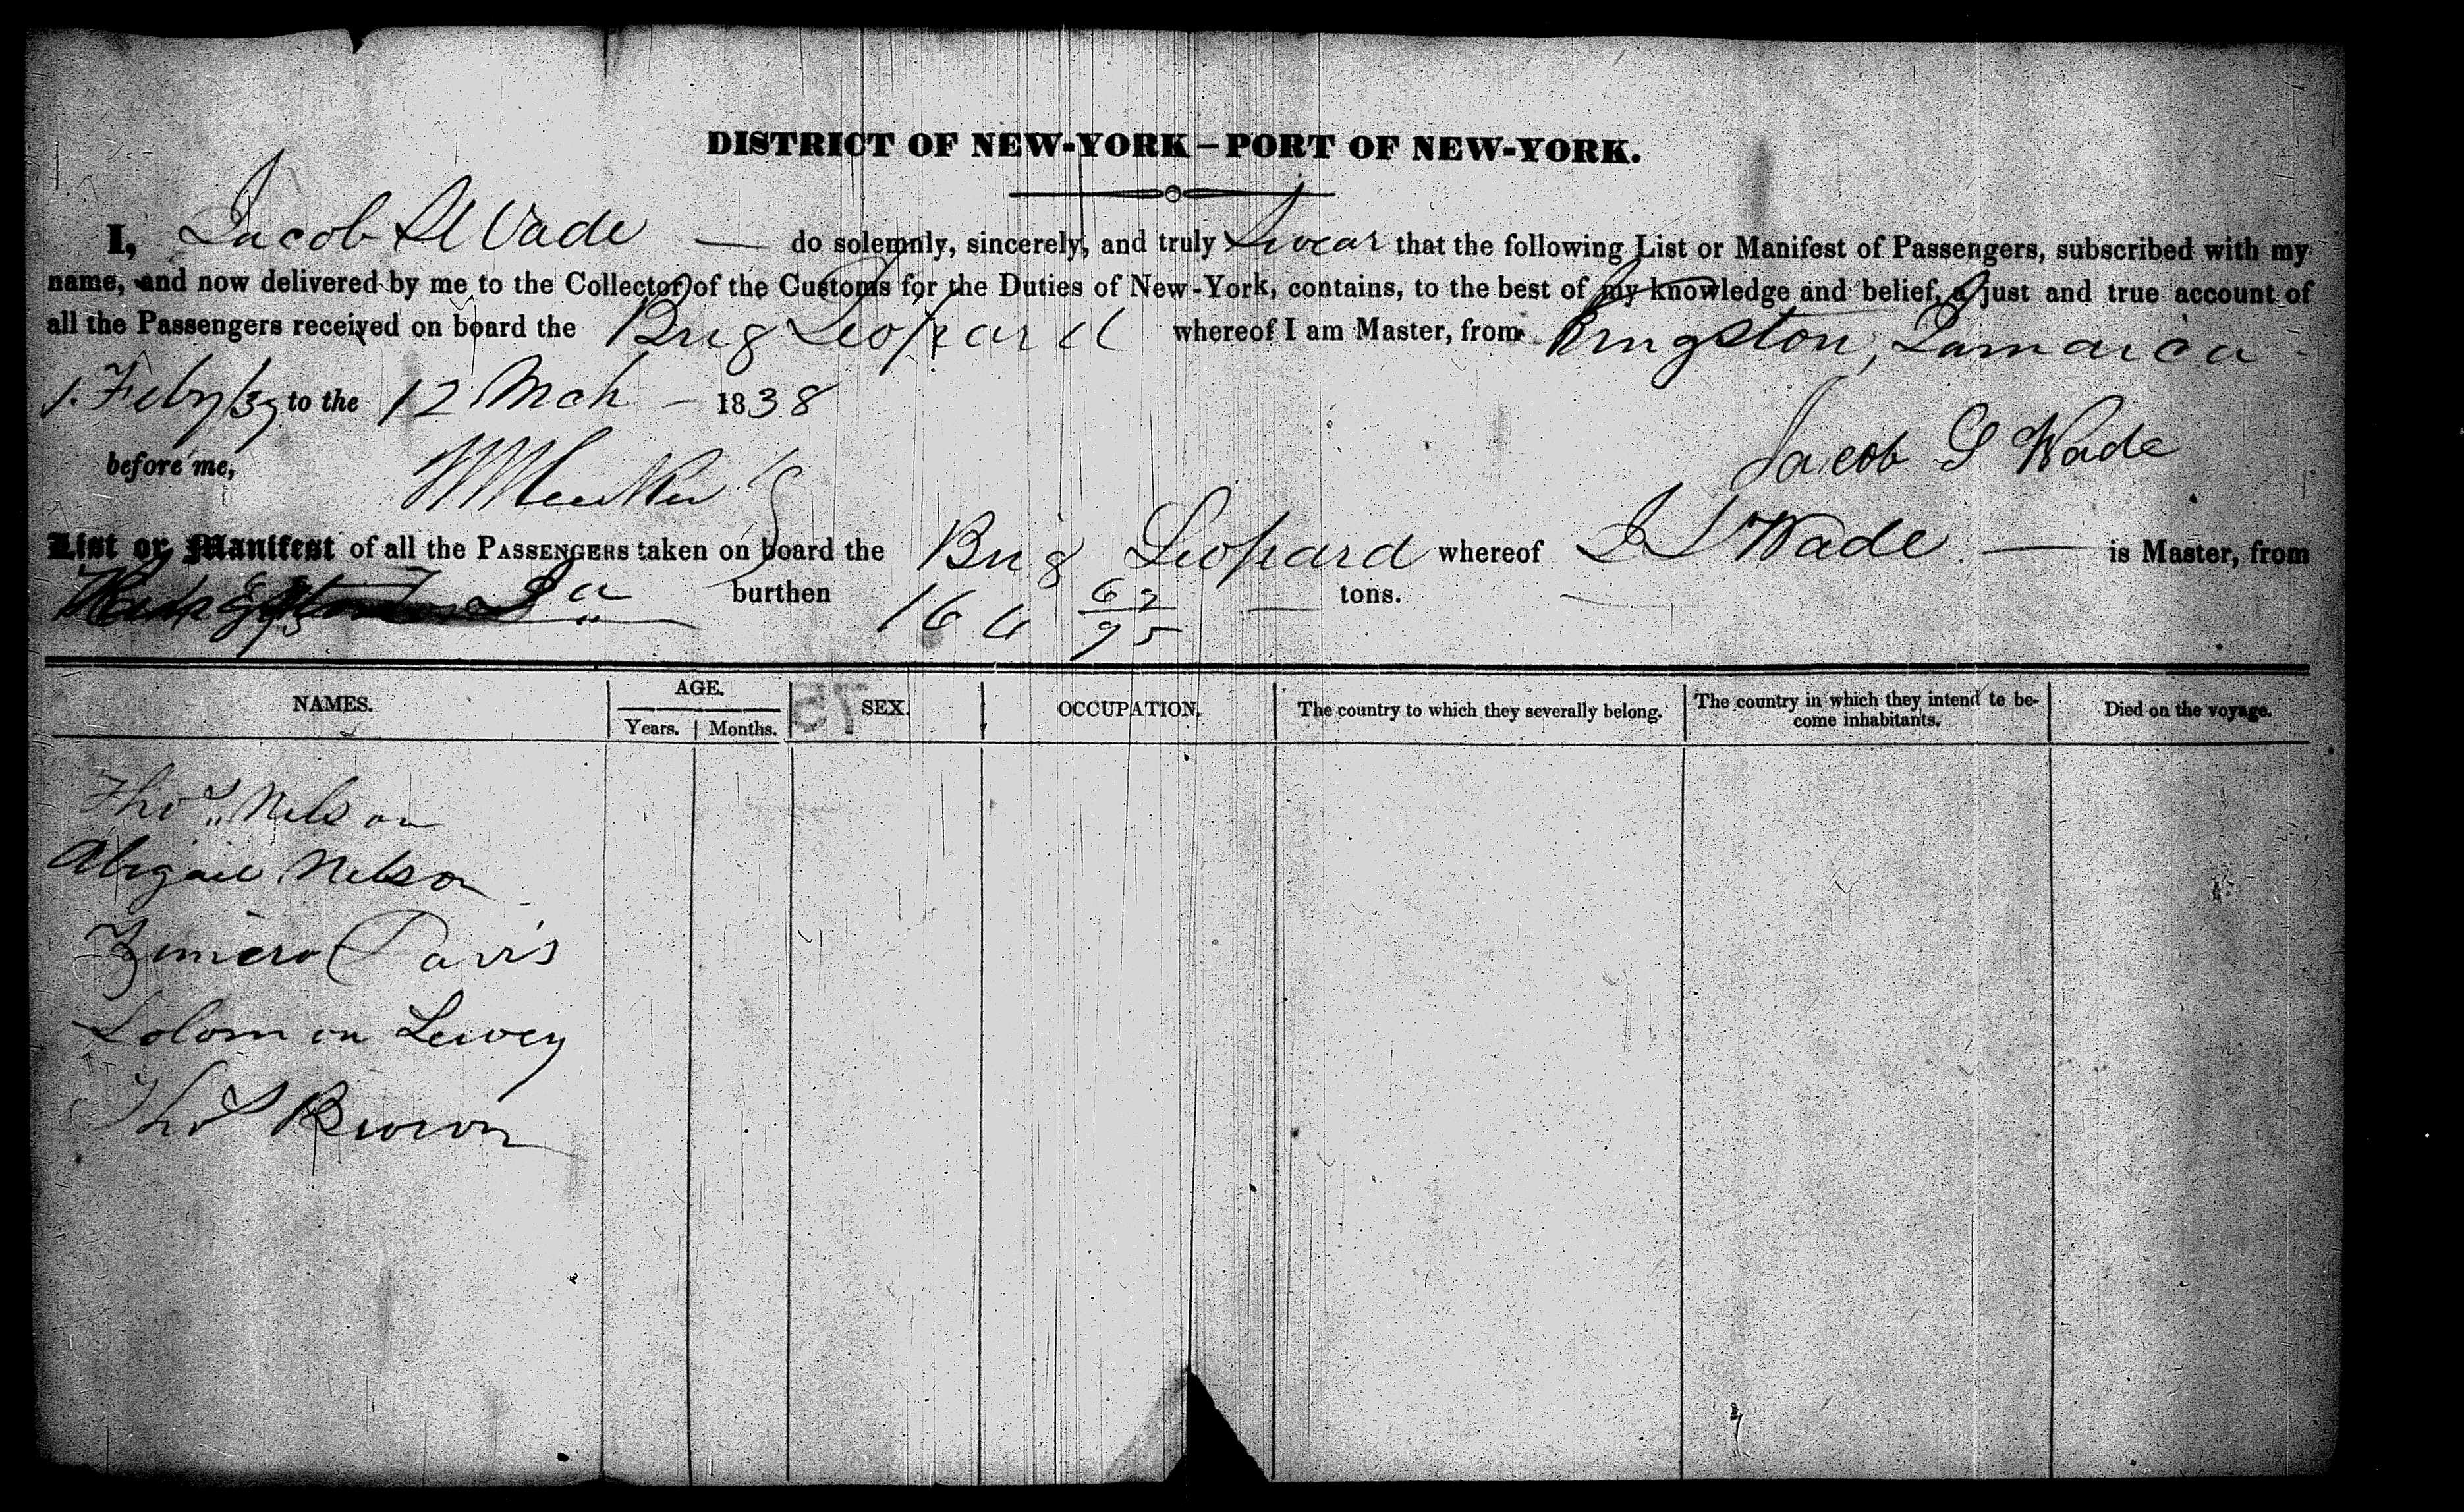 DISTRICT OF NEW-YORK—PORT OF NEW-YORK.
I, Jacob S Wade — do solemnly, sincerely, and truly Swear that the following List or Manifest of Passengers, subscribed with my
name, and now delivered by me to the Collector of the Customs for the Duties of New-York, contains, to the best of my knowledge and belief, a just and true account of
all the Passengers received on board the Brig Leopard whereof I am Master, from Kingston, Jamaica
to the 12 Mch - 1838
Jacob S Wade
before me,
List or Manifest of all the PASSENGERS taken on board the Brig Leopard whereof J S Wade — is Master, from
Ja burthen 166 62/95 tons.
NAMES. AGE. Years. Months. SEX. OCCUPATION. The country to which they severally belong. The country in which they intend to become inhabitants. Died on the voyage.
75
Thos Nelson
Abigail Nelson
Davis
Solomon Lewey
Thos Brown